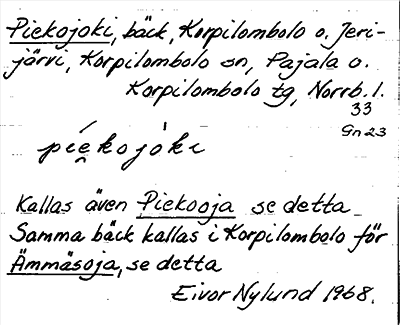 Piekojoki, bäck, Korpilombolo o. Jeri-
järvi, Korpilombolo sn, Pajala o.
Korpilombolo tg, Norrb. l.
33
Gn 23
píe̯kojòki
Kallas även Piekooja se detta
Samma bäck kallas i Korpilombolo för
Ämmäsoja, se detta
Eivor Nylund 1968.